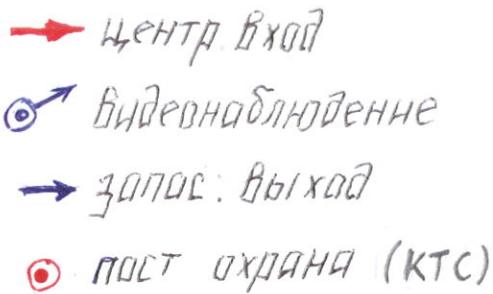 центр. вход
видеонаблюдение
запас. выход
пост охрана (КТС)